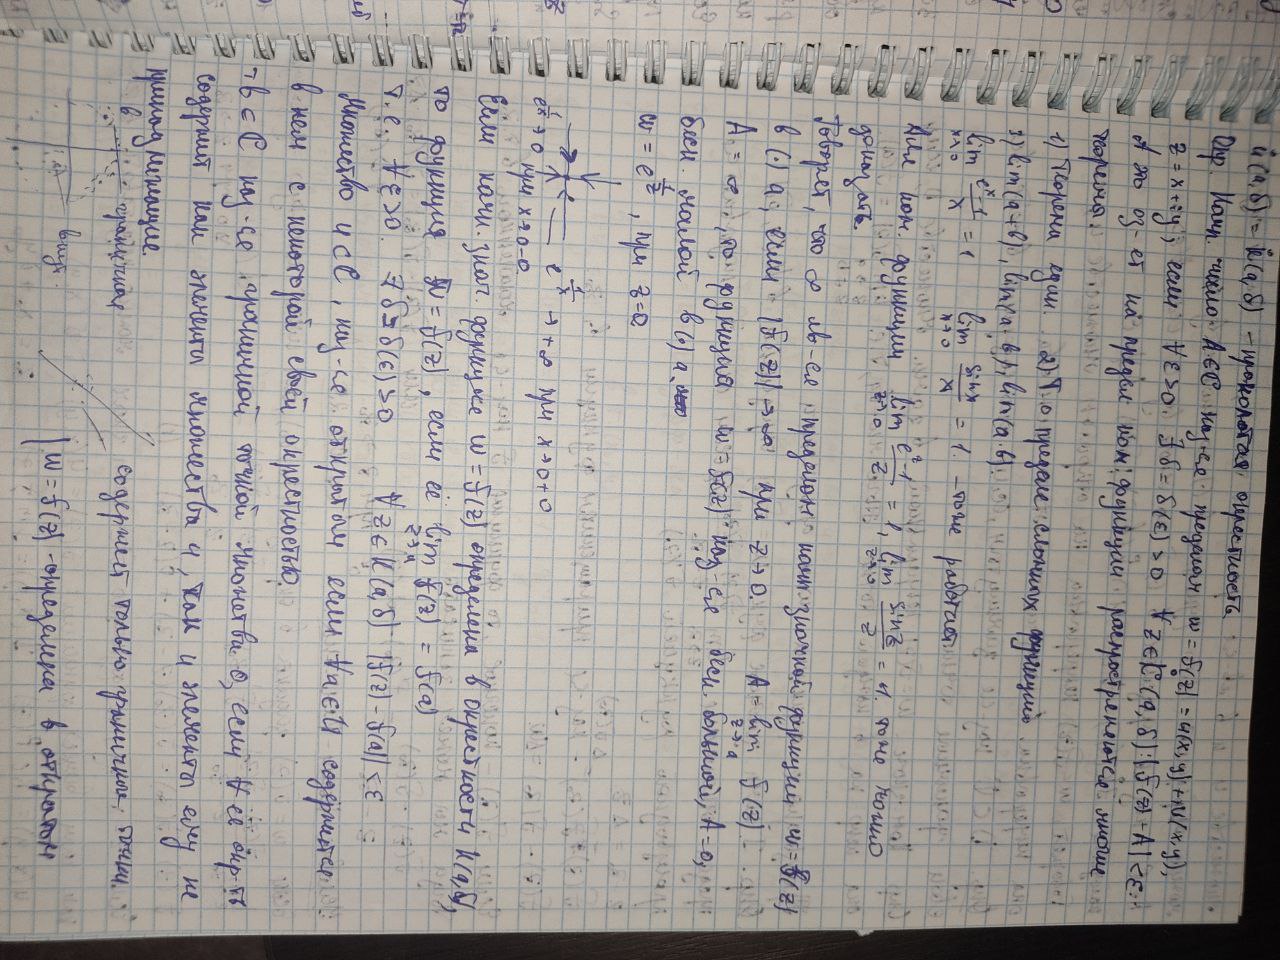 K(a,δ) = K(a,δ) - проколотая окрестность
Опр. Комп. число A∈C наз-ся пределом w = f(z) = u(x,y)+iv(x,y),
z = x+iy, если ∀ε>0 ∃ δ = δ(ε) > 0 ∀ z∈K(a,δ) |f(z) - A| < ε.
На предел комп. функции распространяются многие
теоремы.
1) Теорема един. 2) Т. о пределе сложных функций
3) lim(a+b), lim(a·b), lim(a:b)
lim x→0 (e^x-1)/x = 1 lim x→0 sinx/x = 1. - тоже работают
Для комп функции lim z→0 (e^z-1)/z = 1, lim z→0 sinz/z = 1. тоже можно
допускать
Говорят, что ∞ яв-ся пределом комп. значной функции w = f(z)
в (·) a, если |f(z)| → ∞ при z→0. A = lim z→a f(z).
A = ∞, то функция w = f(z) наз-ся беск большой, A = 0,
беск. малой в (·) a.
w = e^{1/z}, при z=0
e^{1/x} → +∞ при x→0+0
e^{1/x} → 0 при x→0-0
Если комп. знач. функция w = f(z) определена в окрестности K(a,δ),
то функция w = f(z), если её lim z→a f(z) = f(a)
т.е. ∀ε>0 ∃ δ = δ(ε) > 0 ∀ z∈K(a,δ) |f(z) - f(a)| < ε
Множество U⊂C, наз-ся открытым если ∀a∈U содержится
в нем с некоторой своей окрестностью
т b∈C наз-ся граничной точкой множества, если ∀ её окр-ть
содержит как элементы множества U, так и элементы ему не
принадлежащие
содержит только граничные точки.
граничная
w = f(z) - определена в открытом